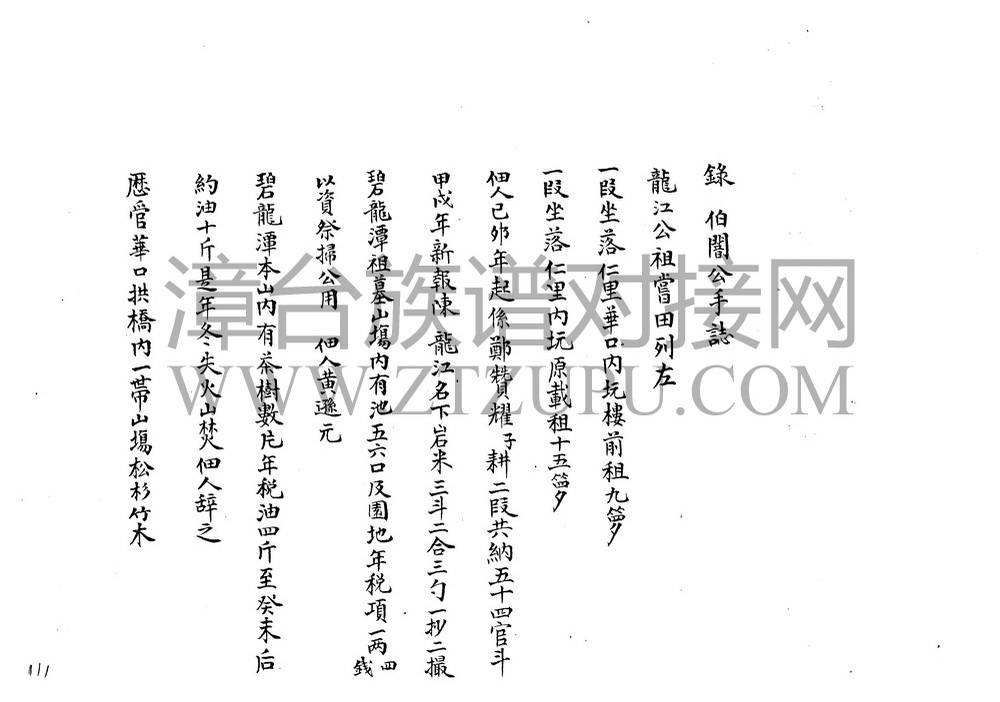 錄 伯闇公手誌
龍江公祖嘗田列左
一段坐落仁里華口內坑樓前租九籮
一段坐落仁里內坑原載租十五籮
佃人己卯年起係鄭贊耀子耕二段共納五十四官斗
甲戌年新報陳龍江名下岩米三斗二合三勺一抄二撮
碧龍潭祖墓山塲內有池五六口及園地年稅項一两四錢
以資祭掃公用 佃人黃遜元
碧龍潭本山內有茶樹數片年稅油四斤至癸未后
約油十斤是年冬失火山焚佃人辞之
歷管華口拱橋內一帶山塲松杉竹木
漳台族谱对接网
WWW.ZTZUPU.COM
111